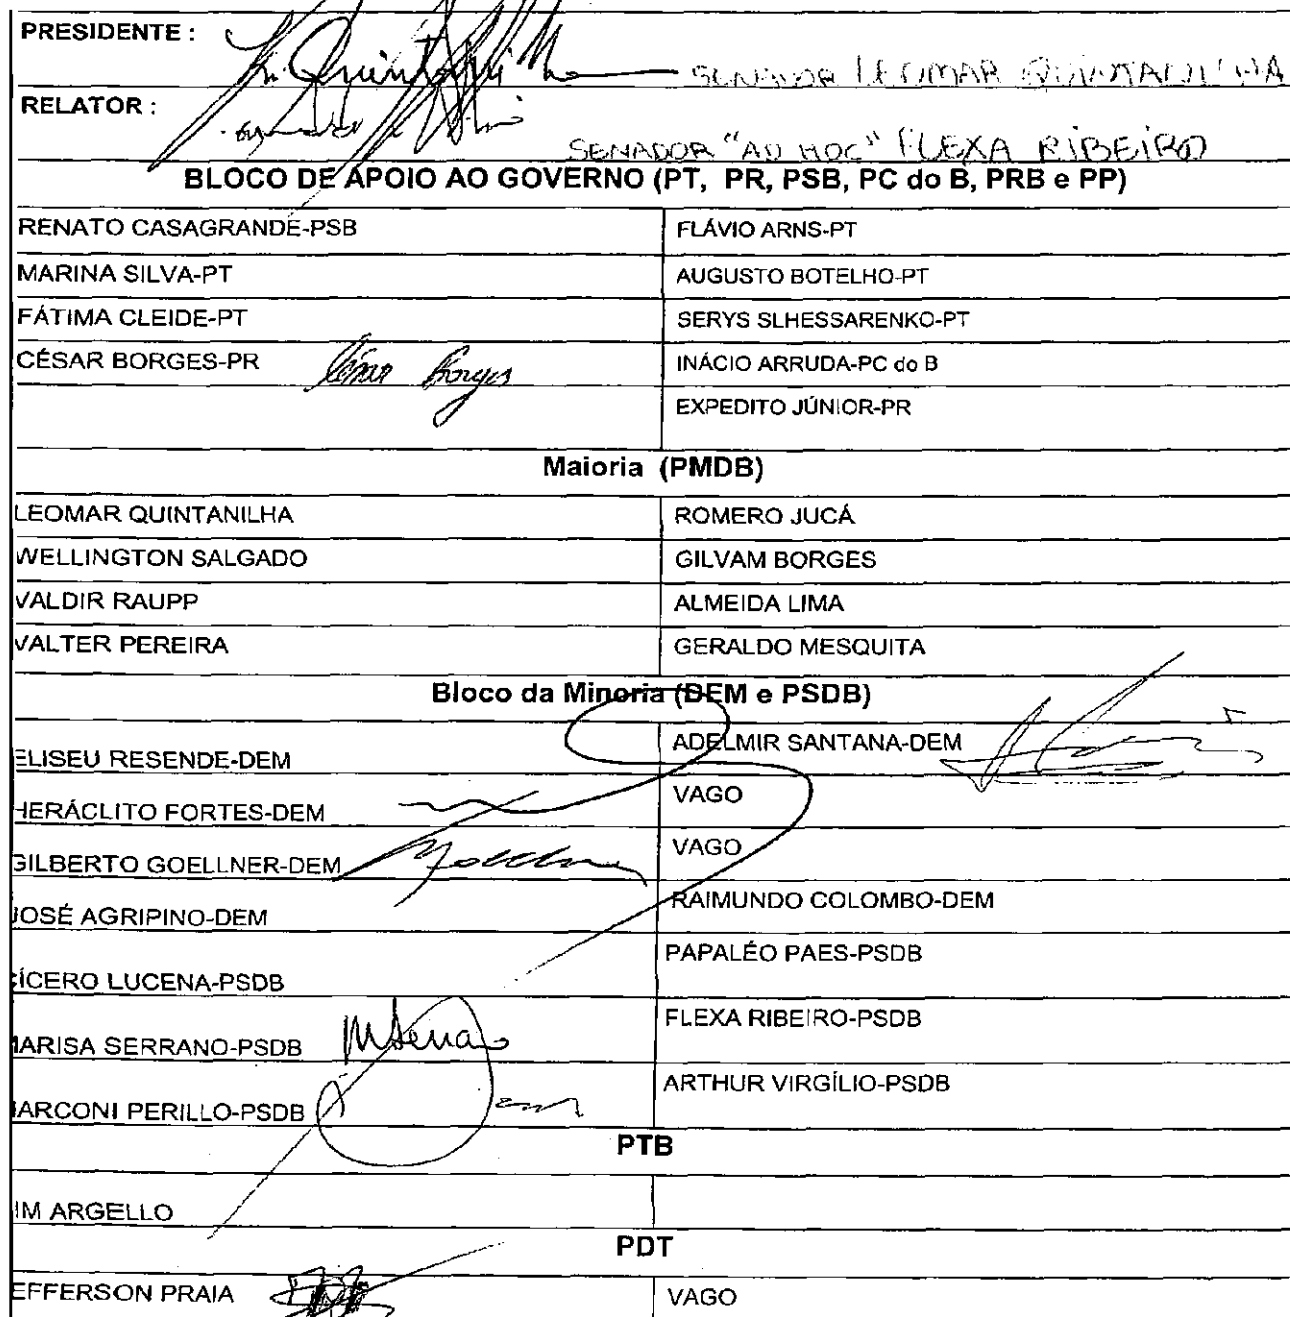 PRESIDENTE :
SENADOR LEOMAR QUINTANILHA
RELATOR :
SENADOR "AD HOC" FLEXA RIBEIRO
BLOCO DE APOIO AO GOVERNO (PT, PR, PSB, PC do B, PRB e PP)
RENATO CASAGRANDE-PSB FLÁVIO ARNS-PT
MARINA SILVA-PT AUGUSTO BOTELHO-PT
FÁTIMA CLEIDE-PT SERYS SLHESSARENKO-PT
CÉSAR BORGES-PR César Borges INÁCIO ARRUDA-PC do B
EXPEDITO JÚNIOR-PR
Maioria (PMDB)
LEOMAR QUINTANILHA ROMERO JUCÁ
WELLINGTON SALGADO GILVAM BORGES
VALDIR RAUPP ALMEIDA LIMA
VALTER PEREIRA GERALDO MESQUITA
Bloco da Minoria (DEM e PSDB)
ELISEU RESENDE-DEM ADELMIR SANTANA-DEM
HERÁCLITO FORTES-DEM VAGO
GILBERTO GOELLNER-DEM VAGO
JOSÉ AGRIPINO-DEM RAIMUNDO COLOMBO-DEM
CÍCERO LUCENA-PSDB PAPALÉO PAES-PSDB
MARISA SERRANO-PSDB FLEXA RIBEIRO-PSDB
MARCONI PERILLO-PSDB ARTHUR VIRGÍLIO-PSDB
PTB
IM ARGELLO
PDT
EFFERSON PRAIA VAGO